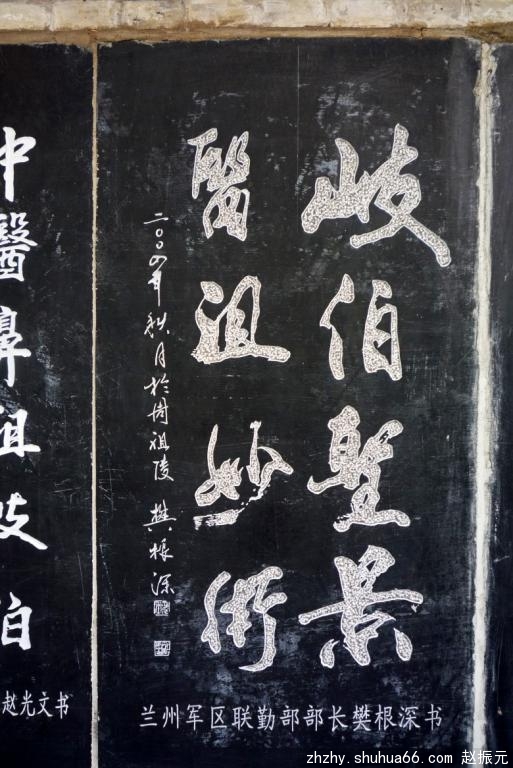 岐伯聖景
醫祖妙術
二〇〇四年秋月於周祖陵 樊根深
兰州军区联勤部部长樊根深书
中醫鼻祖岐伯
赵光文书
zhzhy.shuhua66.com 赵振元